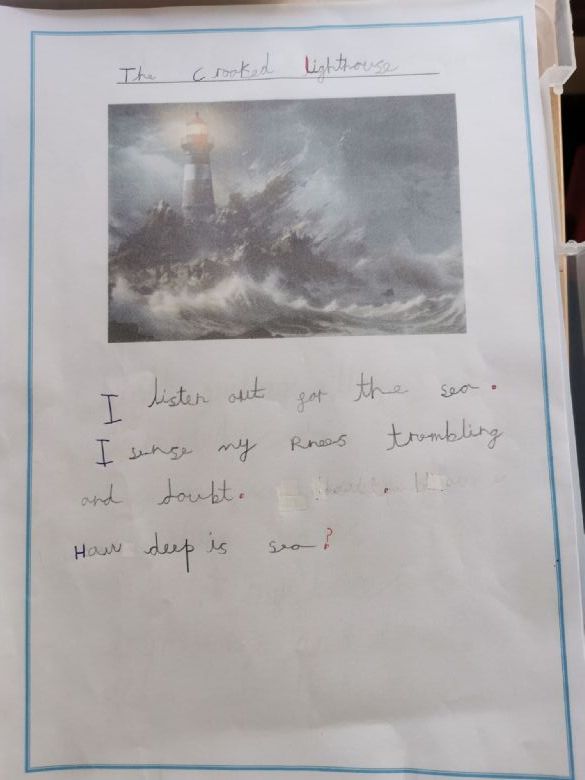 The Crooked Lighthouse
I listen out for the sea.
I sense my knees trembling
and doubt.
How deep is sea?